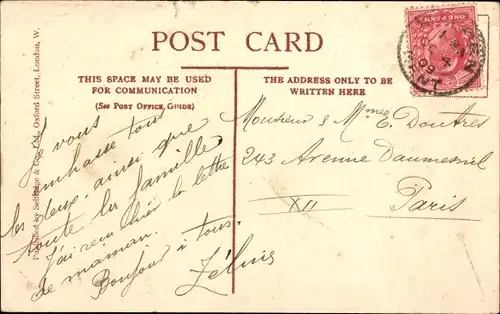 POST CARD
THIS SPACE MAY BE USED
FOR COMMUNICATION
(See Post Office Guide)
THE ADDRESS ONLY TO BE
WRITTEN HERE
Published by Selfridge & Co., Ltd., Oxford Street, London, W.
Je vous
embrasse tous
les deux, ainsi que
toute la famille
J'ai reçu hier la lettre
de maman.
Bonjour à tous.
Zélius
Monsieur & Mmee E. Doutres
243 Avenue Daumesnil
XII Paris
ONE PENNY